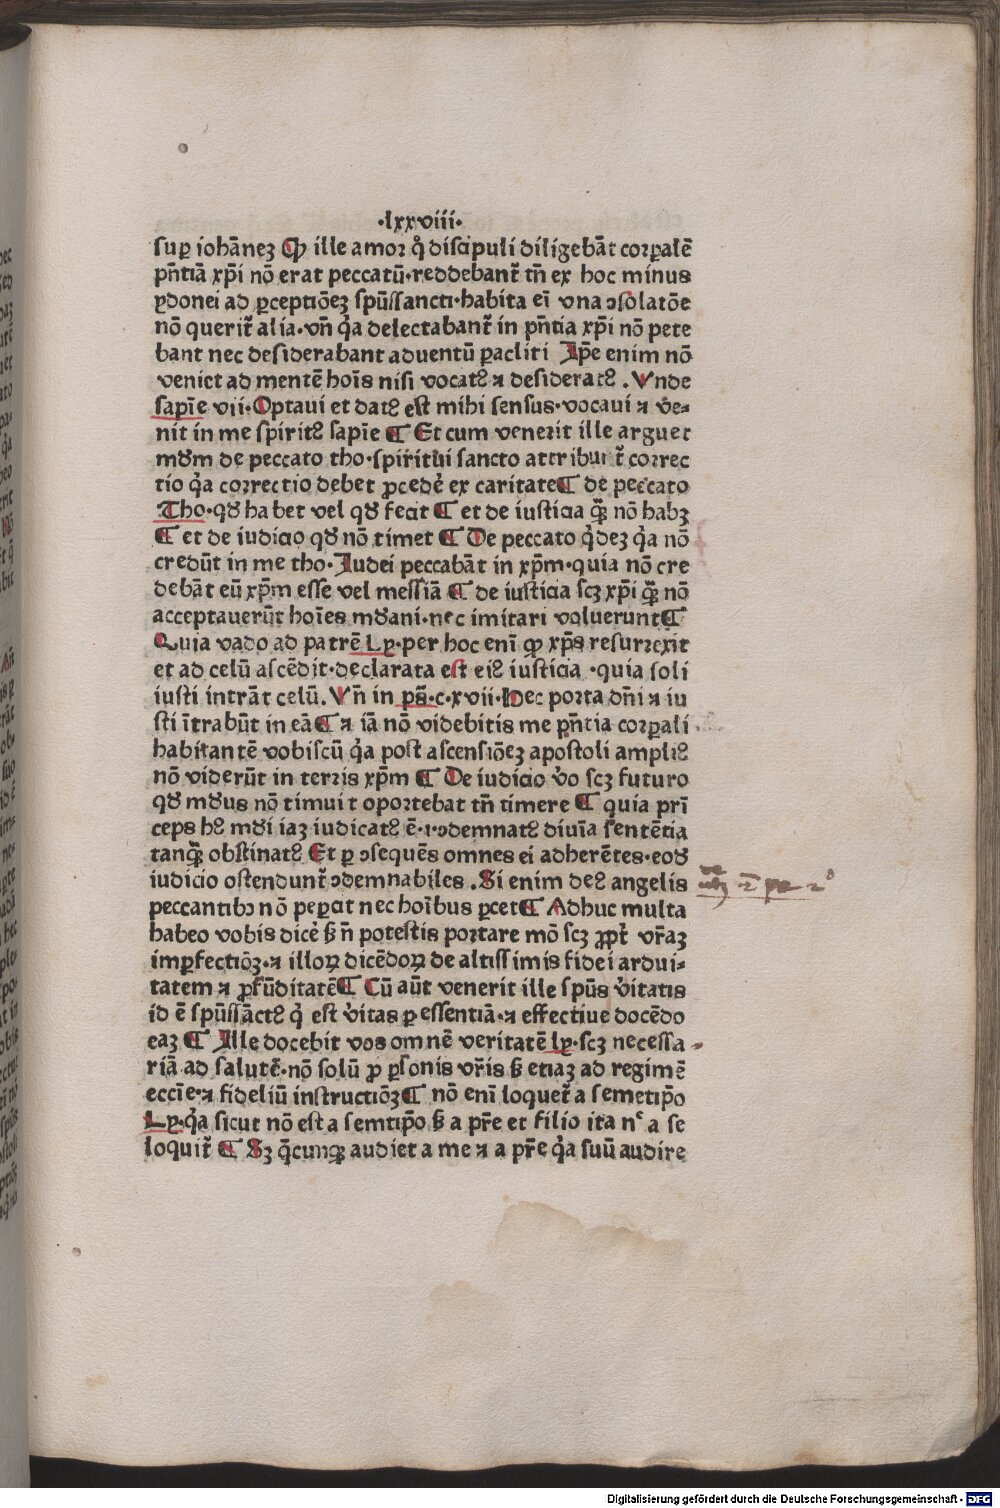 ·lxxviii·
suꝑ iohānez Qꝙ ille amor q̊ discipuli diligebāt corꝑalē
pn̄tiā xp̄i nō erat peccatū·reddebant᷑ tn̄ ex hoc minus
ꝑdonei ad ꝑceptiōez spūssancti·habita eī vna ↄsolatōe
nō querit᷑ alia·vn̄ q̇a delectabant᷑ in pn̄tia xp̄i nō pete
bant nec desiderabant aduentū ꝑacliti Ip̄e enim nō
veniet ad mentē hoīs nisi vocatꝰ ⁊ desideratꝰ .Vnde
sapīe vii·Optaui et datꝰ est mihi sensus·vocaui ⁊ ve-
nit in me spiritꝰ sapīe ¶ Et cum venerit ille arguet
mūdm de peccato tho·spiritui sancto attribuit᷑ correc
tio q̇a correctio debet ꝓcede᷑ ex caritate¶ de peccato
Tho·qđ habet vel qđ fecit ¶ et de iusticia qꝫ nō habꝫ
¶ et de iudicio qđ nō timet ¶ De peccato q̇dez q̇a nō
credūt in me tho· Iudei peccabāt in xp̄m·quia nō cre
debāt eū xp̄m esse vel messiā ¶ de iusticia scꝫ xp̄i qꝫ nō
acceptauerūt hoīes mūdani·nec imitari voluerunt¶
Quia vado ad patrē Ly·per hoc enī ꝙ xp̄s resurrexit
et ad celū ascēdit·declarata est eiꝰ iusticia ·quia soli
iusti intrāt celū. Vn̄ in ps̄·c·xvii·Hec porta dn̄i ⁊ iu
sti ītrabūt in eā¶ ⁊ iā nō videbitis me pn̄tia corꝑali
habitantē vobiscū q̇a post ascensiōez apostoli ampliꝰ
nō viderūt in terris xp̄m ¶ De iudicio v̇o scꝫ futuro
qđ mūdus nō timuit oportebat tn̄ timere ¶ quia prī
ceps hꝰ mūdi iaz iudicatꝰ ē·ↄdemnatꝰ diuīa sentētia
tanqꝫ obstinatꝰ Et ꝑ ↄsequēs omnes ei adherētes·eođ
iudicio ostendunt᷑ ↄdemnabiles .Si enim deꝰ angelis
peccantibꝰ nō peꝑcit nec hoībus ꝑcet¶ Adhuc multa
habeo vobis dice᷑ ß n̄ potestis portare mō scꝫ ꝓpt᷑ vr̄az
imꝑfectiōꝫ·⁊ illoꝝ dicēdoꝝ de altissimis fidei ardui-
tatem ⁊ ꝓfūditatē¶ Cū aūt venerit ille spūs v̇itatis
id ē spūssāctꝰ q̇ est v̇itas ꝑ essentiā·⁊ effectiue docēdo
eaz ¶ Ille docebit vos omnē veritatē ly·scꝫ necessa
riā ad salutē·nō solū ꝓ ꝑsonis vr̄is ß etiaz ad regimē
eccīe·⁊ fideliū instructiōꝫ¶ nō enī loquet᷑ a semetip̄o
Ly·q̇a sicut nō est a semtip̄o ß a pr̄e et filio ita nᶜ a se
loquit᷑ ¶ Sꝫ q̄cunqꝫ audiet a me ⁊ a pr̄e q̇a suū audire
Digitalisierung gefördert durch die Deutsche Forschungsgemeinschaft - DFG